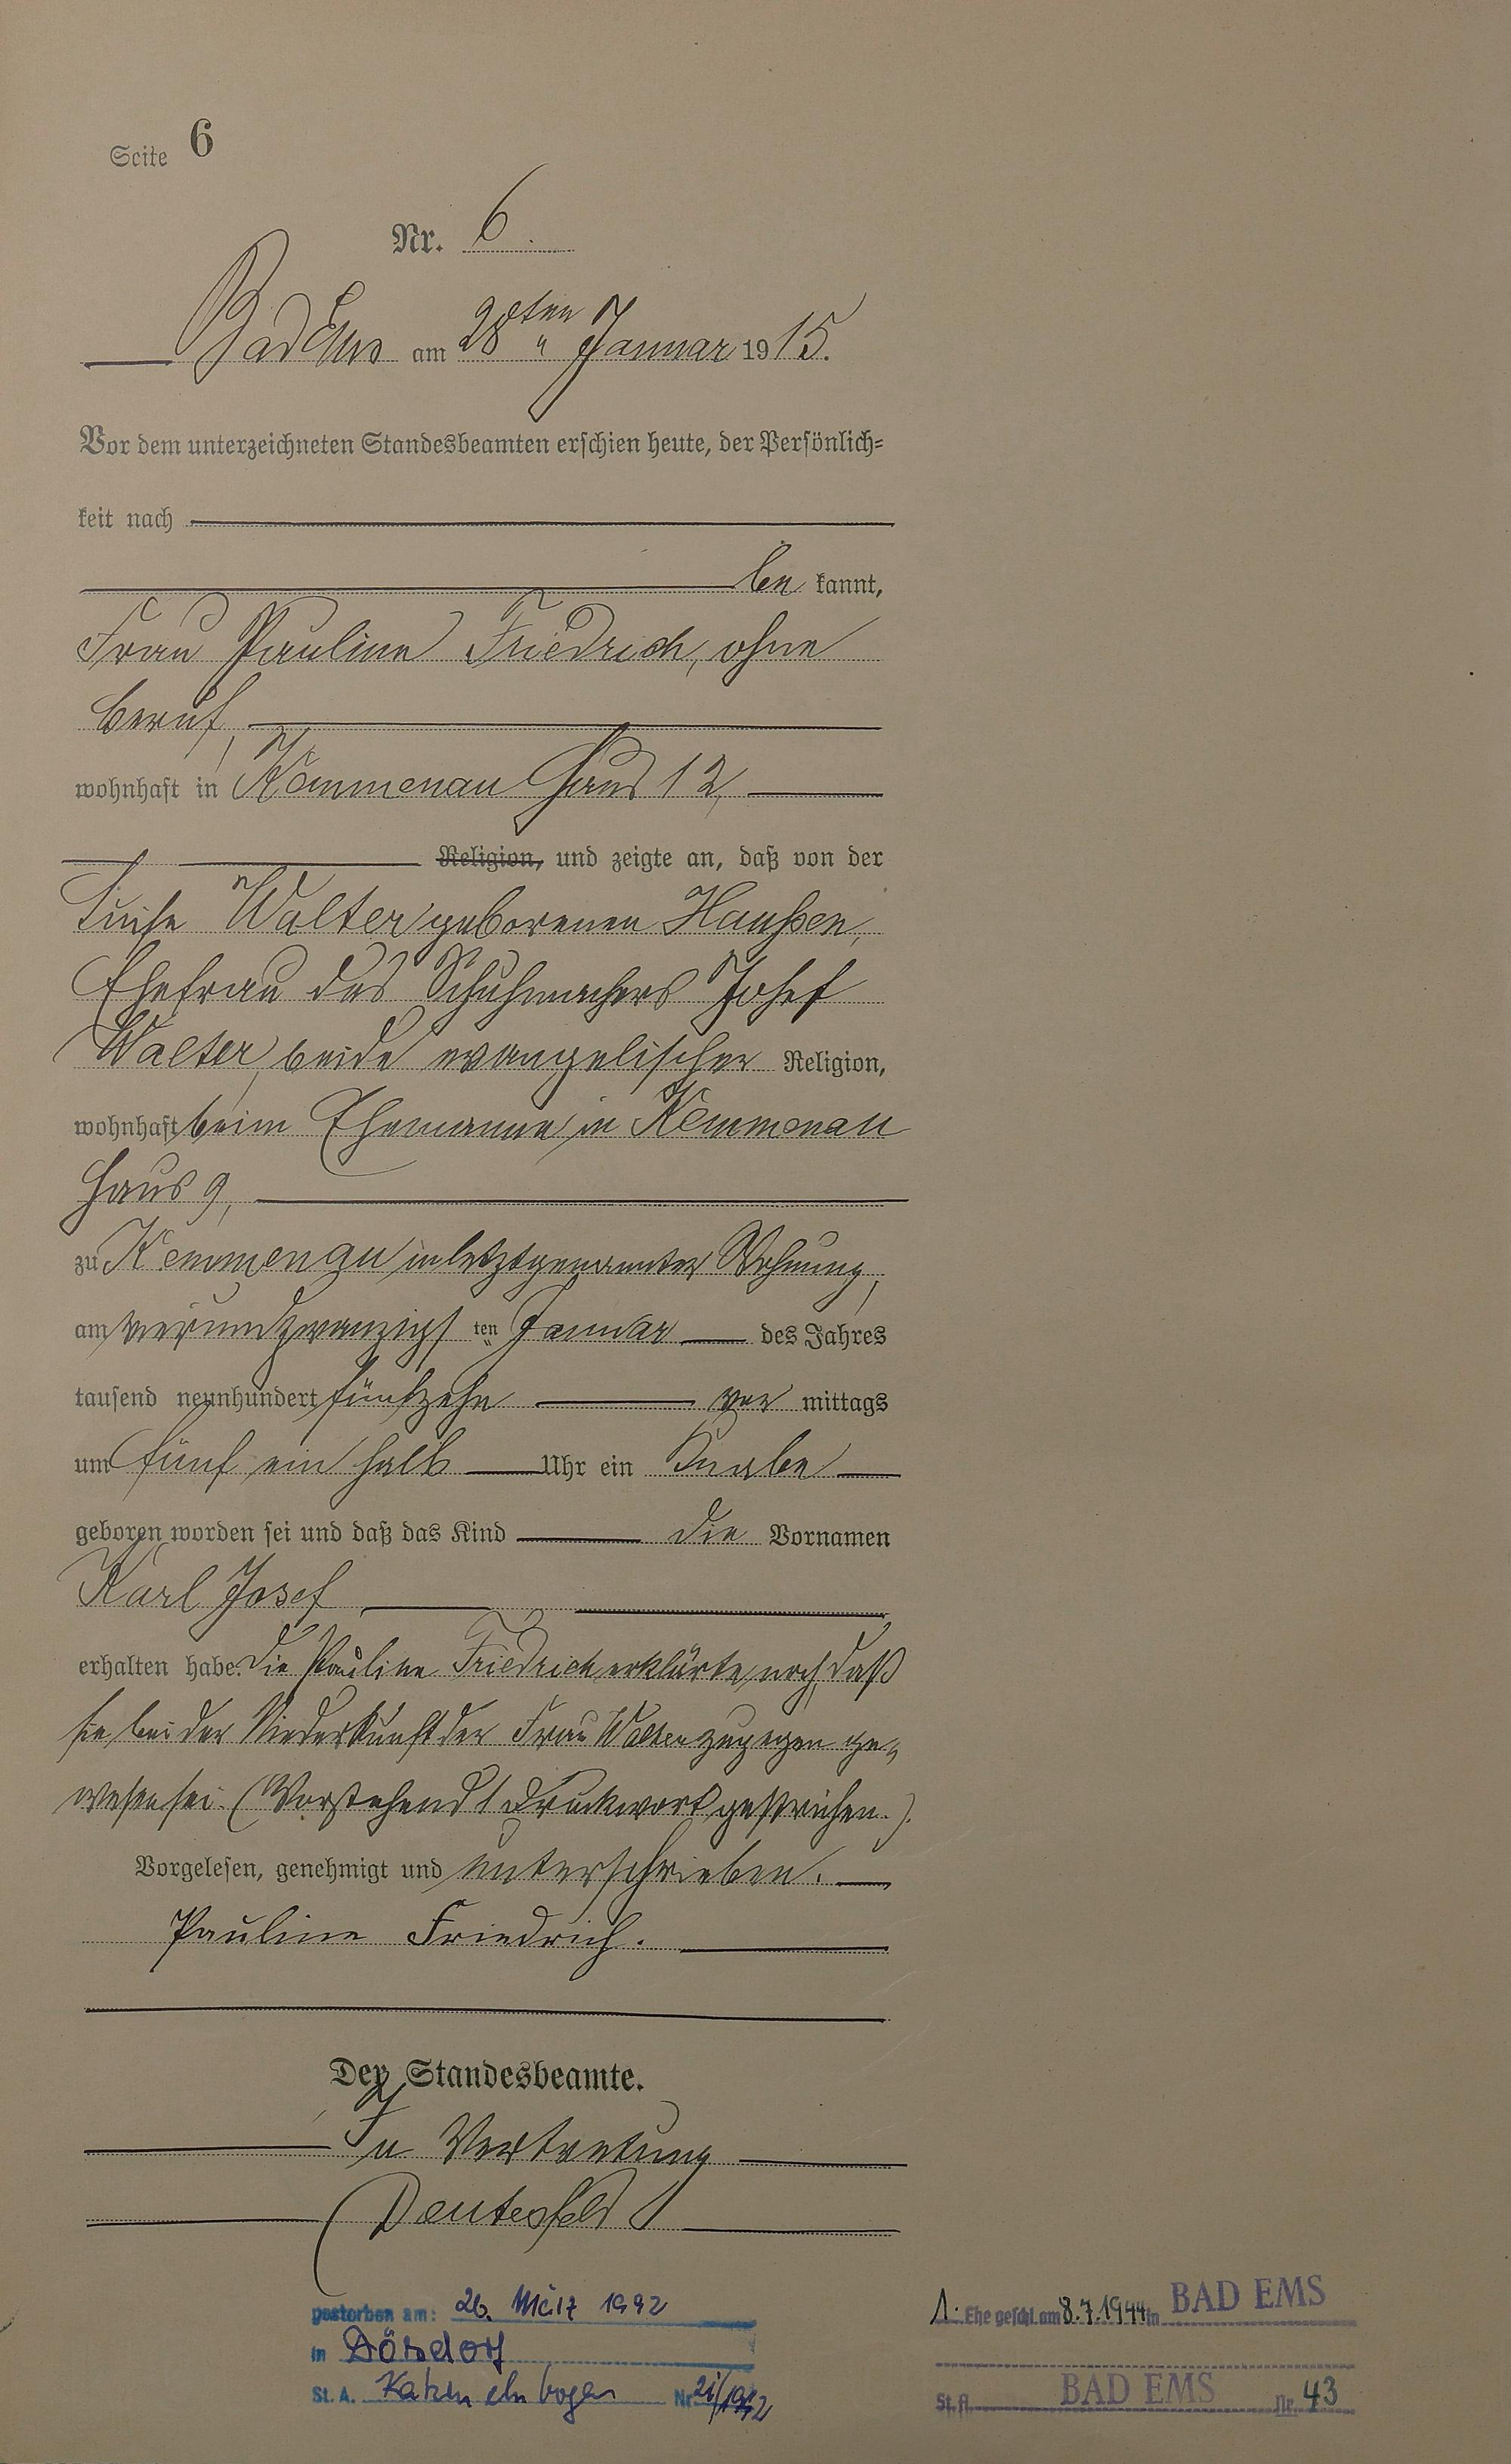 Seite 6
Nr. 6.
Bad Ems am 28ten Januar 1915.
Vor dem unterzeichneten Standesbeamten erschien heute, der Persönlich=
keit nach
be kannt,
Frau Pauline Friedrich, ohne
Beruf,
wohnhaft in Kemmenau Haus 12,
Religion, und zeigte an, daß von der
Luise Walter geborenen Haußen,
Ehefrau des Schuhmachers Josef
Walter, beide evangelischer Religion,
wohnhaft beim Ehemanne in Kemmenau
Haus 9,
zu Kemmenau in letztgenannter Wohnung,
am vierundzwanzigsten Januar des Jahres
tausend neunhundert fünfzehn vor mittags
um fünf ein halb Uhr ein Knabe
geboren worden sei und daß das Kind die Vornamen
Karl Josef
erhalten habe. Die Pauline Friedrich erklärte noch, daß
sie bei der Niederkunft der Frau Walter zugegen ge=
wesen sei. (Vorstehend 1 Druckwort gestrichen.).
Vorgelesen, genehmigt und unterschrieben.
Pauline Friedrich.
Der Standesbeamte.
In Vertretung
gestorben am: 26. März 1992
in Dörsdorf
St. A. Katzenelnbogen Nr. 21/1992
1. Ehe geschl. am 8.7.1944 in BAD EMS
St. A. BAD EMS Nr. 43